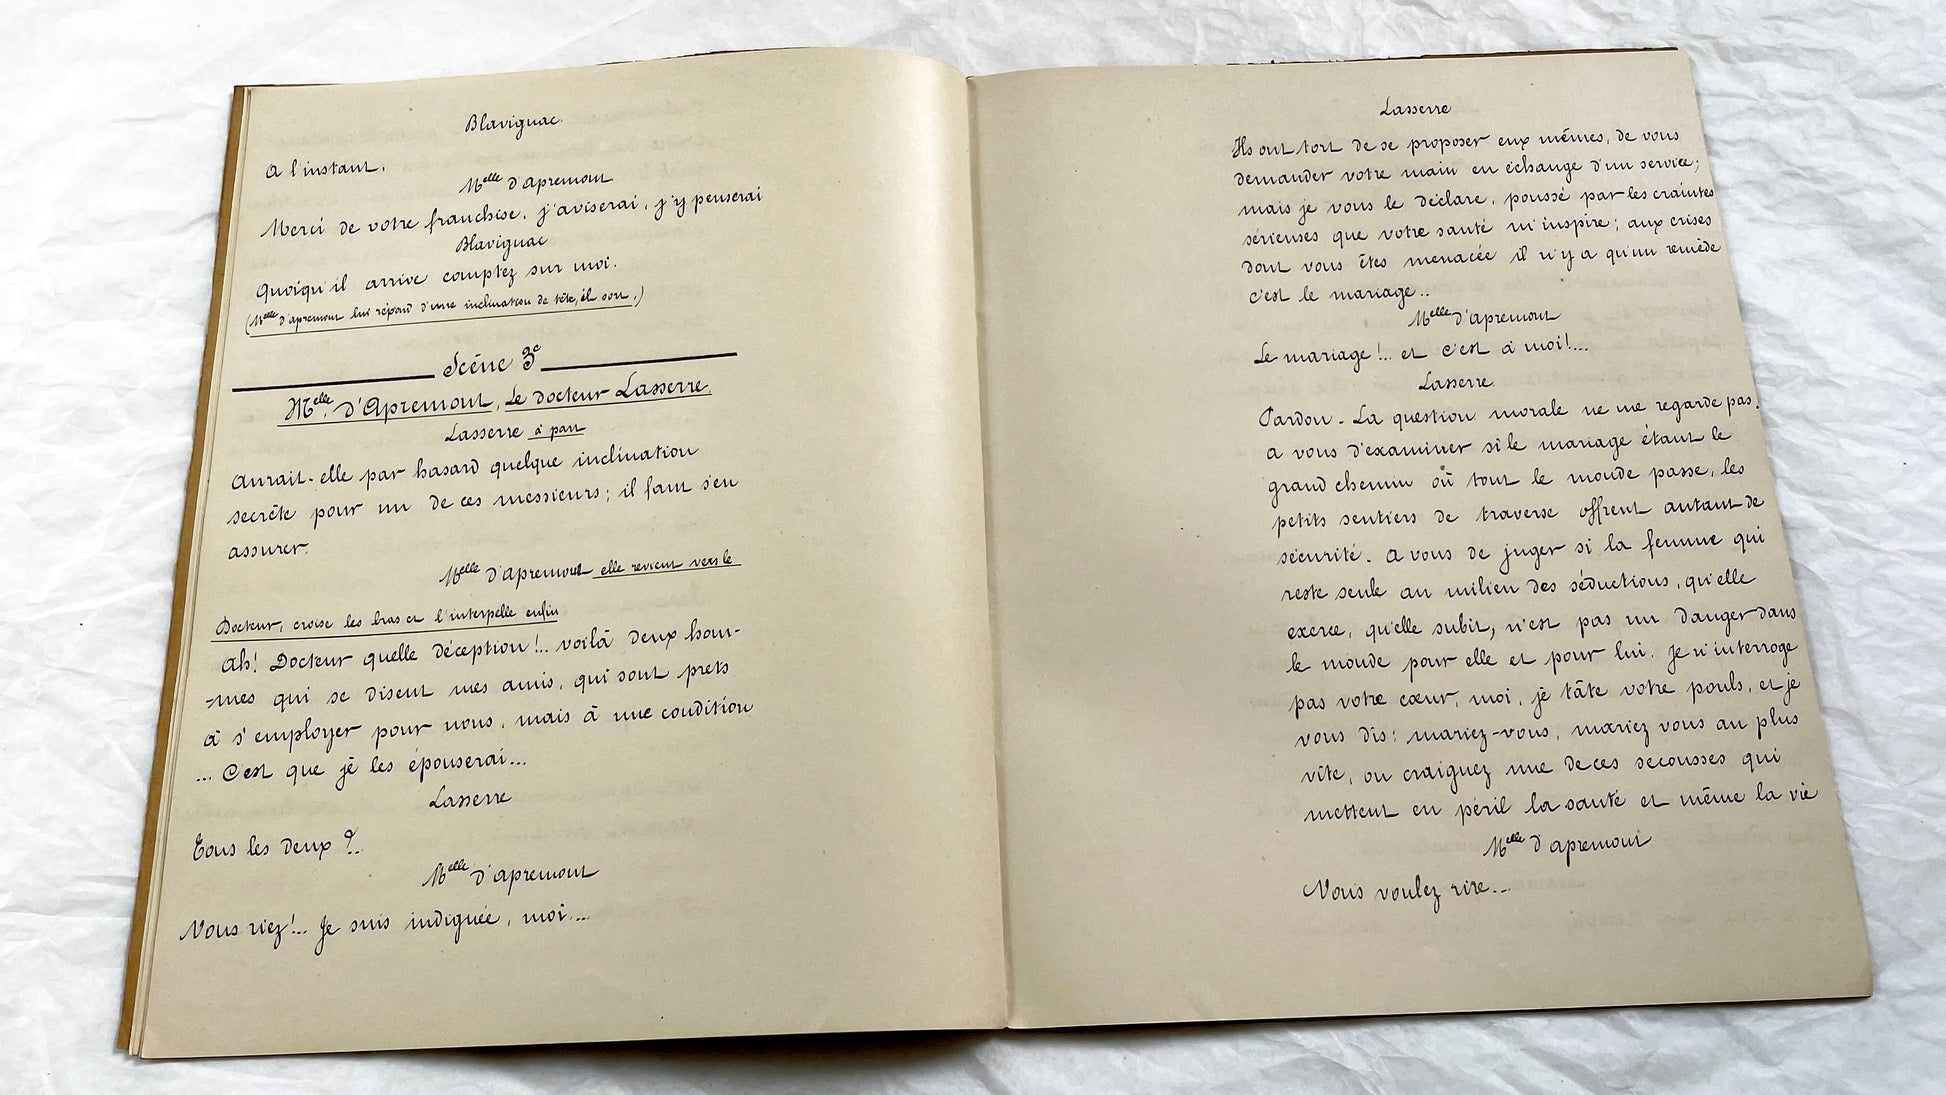 Blavignac.
A l'instant.
Melle d'Apremont
Merci de votre franchise. j'aviserai. j'y penserai
Blavignac
Quoiqu'il arrive comptez sur moi.
(Melle d'Apremont lui répond d'une inclination de tête, il sort.)
Scène 3e
Melle. d'Apremont, Le Docteur Lasserre.
Lasserre à part
Aurait-elle par hasard quelque inclination
secrète pour un de ces messieurs; il faut s'en
assurer.
Melle d'Apremont elle revient vers le
Docteur, croise les bras et l'interpelle enfin
Ah! Docteur quelle déception!.. voilà deux hom-
-mes qui se disent mes amis, qui sont prets
à s'employer pour nous, mais à une condition
... C'est que je les épouserai...
Lasserre
Tous les deux ?..
Melle d'Apremont
Vous riez!.. Je suis indignée, moi...
Lasserre
Ils ont tort de se proposer eux mêmes, de vous
demander votre main en échange d'un service;
mais je vous le déclare, poussé par les craintes
sérieuses que votre santé m'inspire; aux crises
dont vous êtes menacée il n'y a qu'un remède
c'est le mariage..
Melle d'Apremont
Le mariage!.. et c'est à moi!...
Lasserre.
Pardon - La question morale ne me regarde pas.
A vous d'examiner si le mariage étant le
grand chemin où tout le monde passe, les
petits sentiers de traverse offrent autant de
sécurité. A vous de juger si la femme qui
reste seule au milieu des séductions, qu'elle
exerce, qu'elle subit, n'est pas un danger dans
le monde pour elle et pour lui. Je n'interroge
pas votre cœur, moi, je tâte votre pouls, et je
vous dis: mariez-vous, mariez vous au plus
vite, ou craignez une de ces secousses qui
mettent en péril la santé et même la vie
Melle d'Apremont
Vous voulez rire...